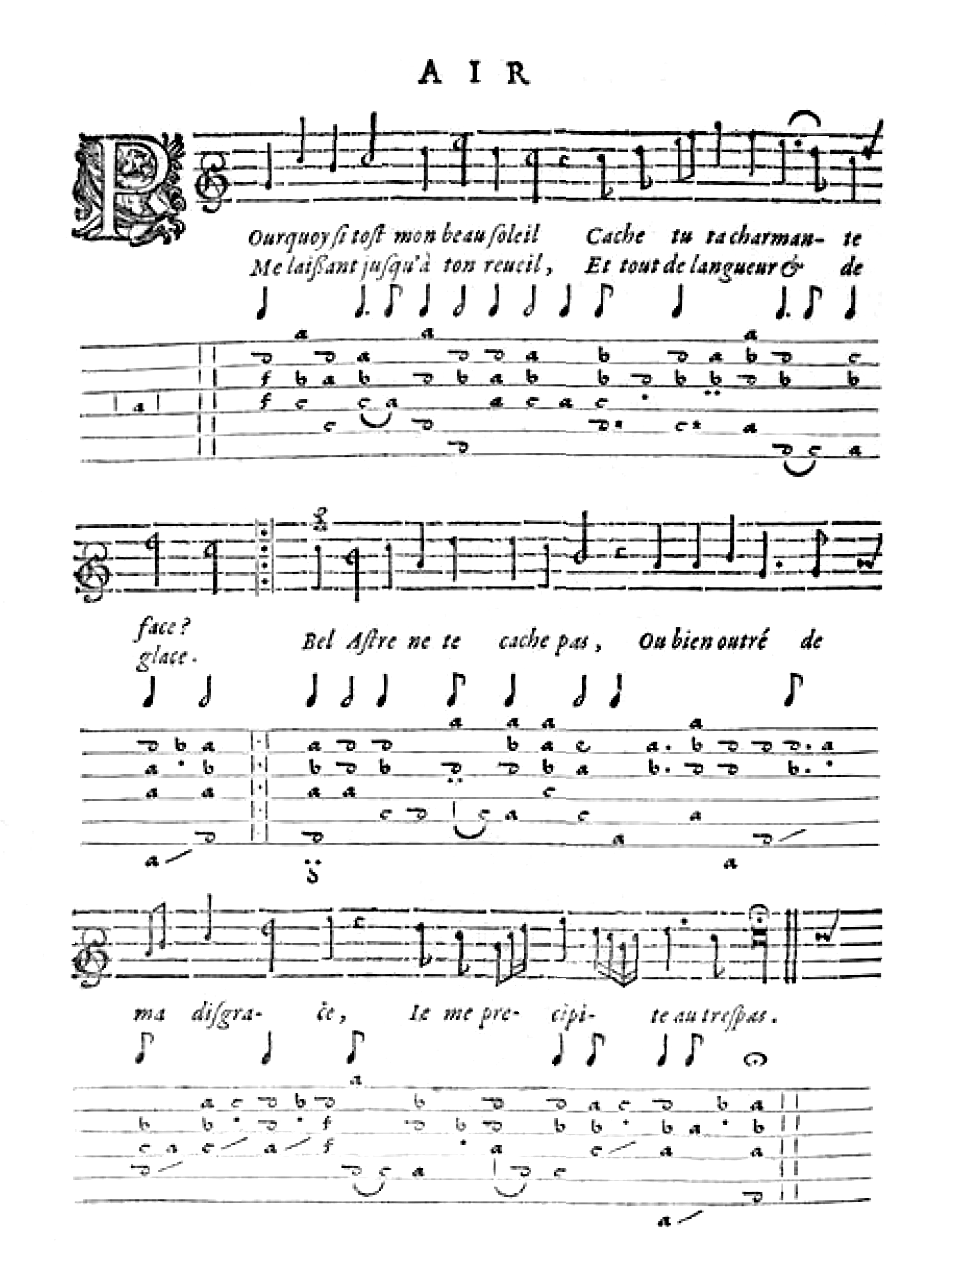 AIR
POurquoy si tost mon beau soleil Cache tu ta charman- te
Me laißant jusqu'à ton reueil, Et tout de langueur & de
face?
glace.
Bel Astre ne te cache pas, Ou bien outré de
ma disgra- ce, Ie me pre- cipi- te au trespas.